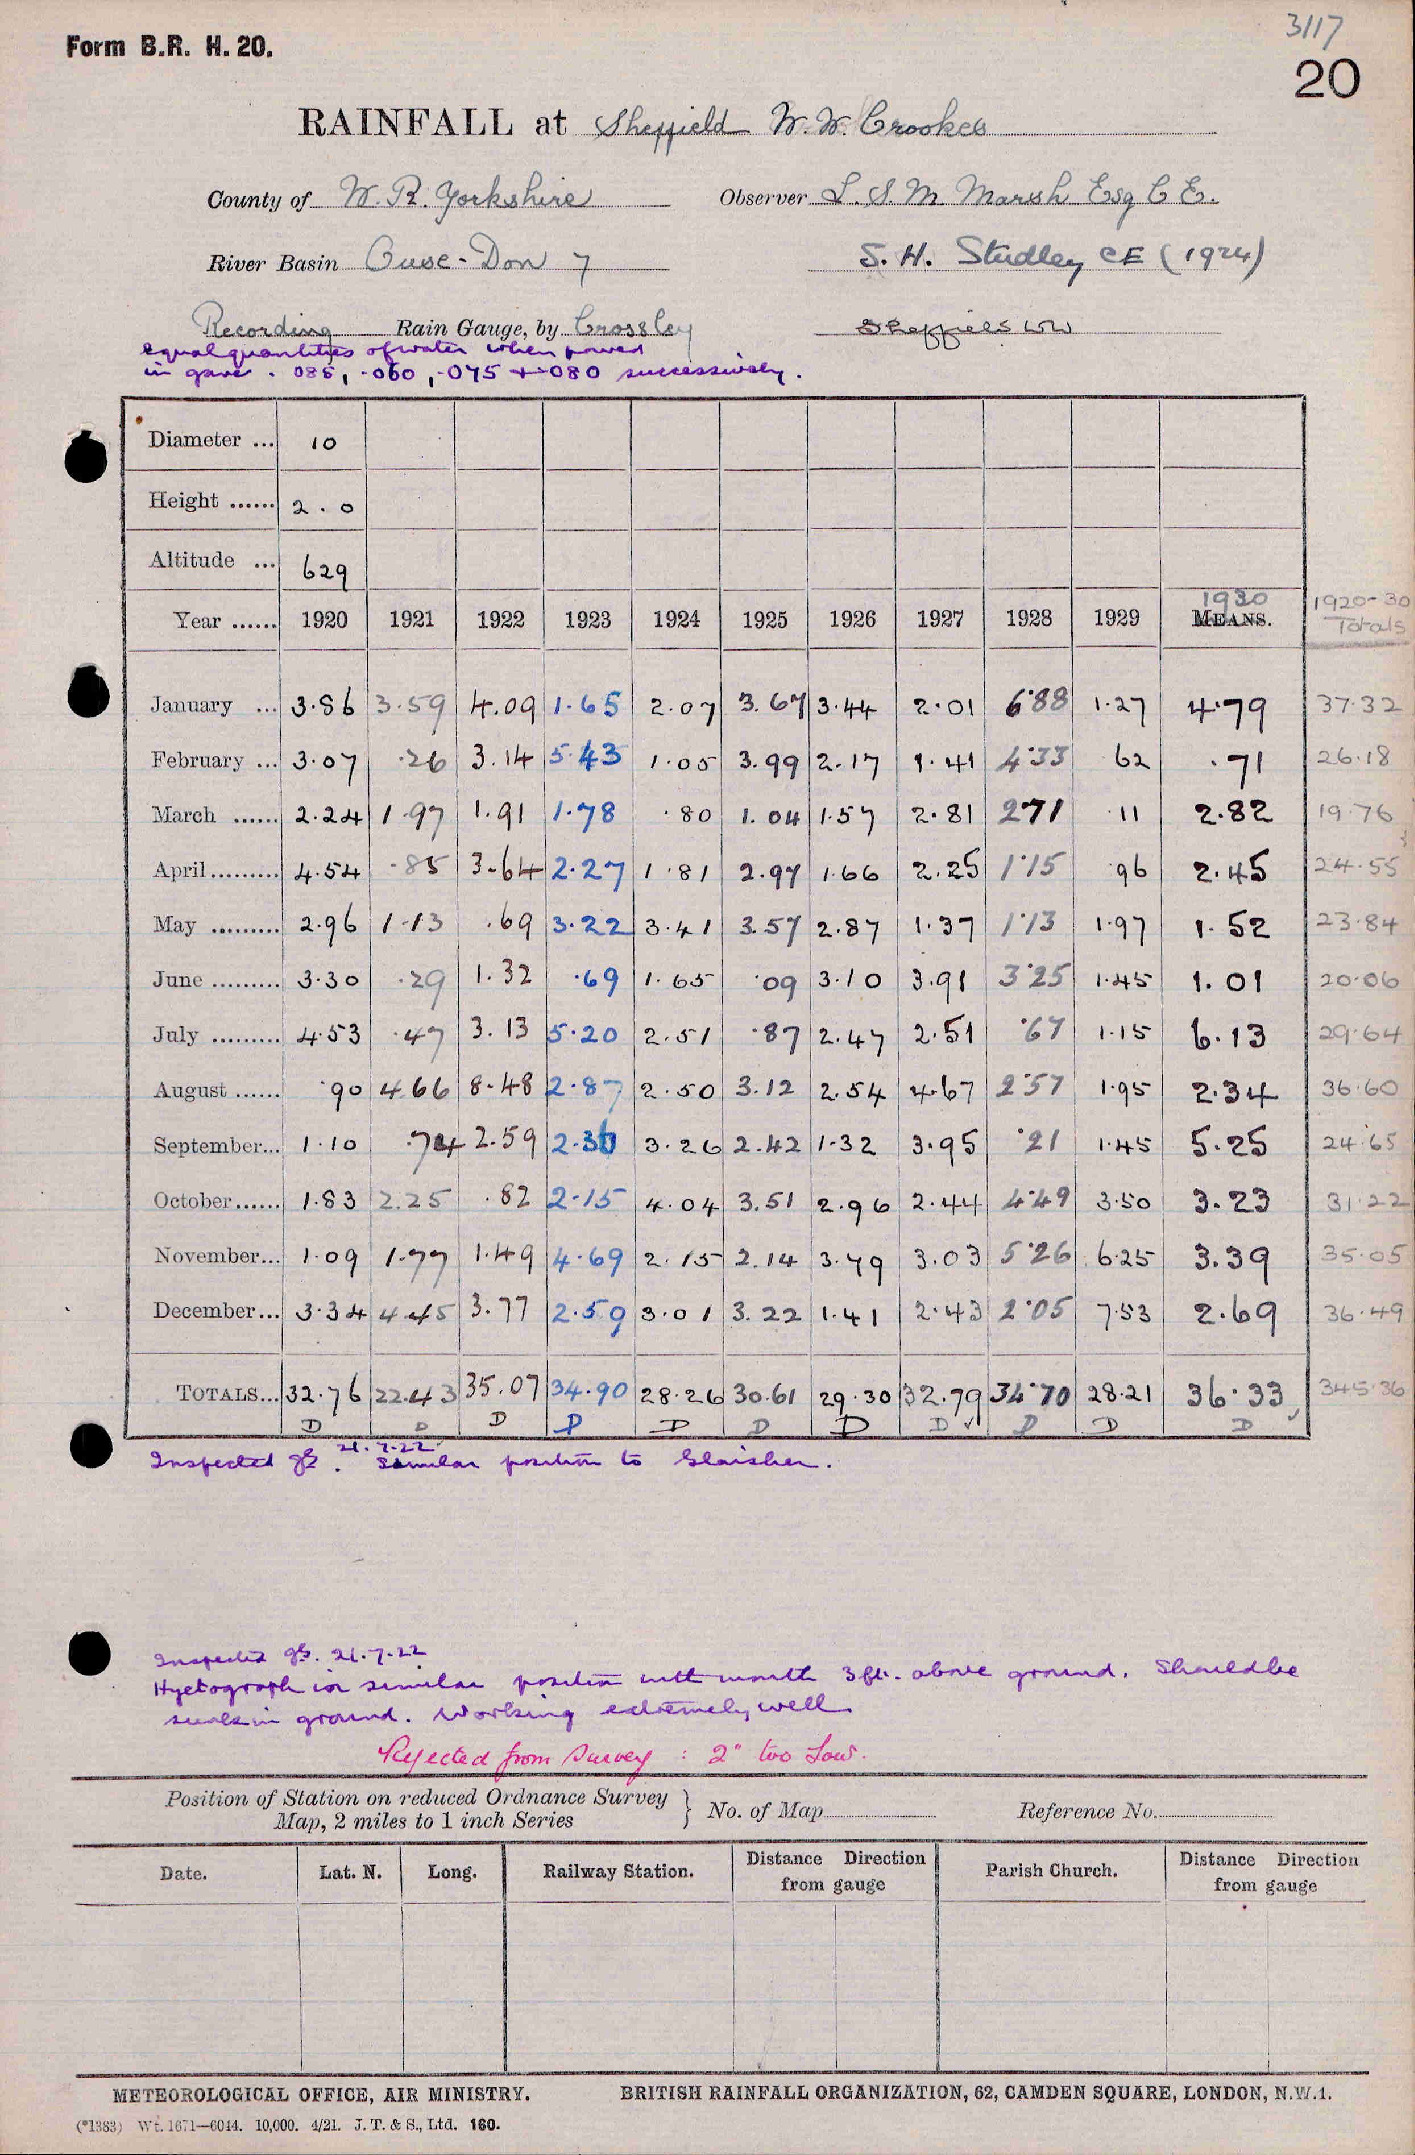 3117
Form B.R. H. 20.
20
RAINFALL at Sheffield W. W. Crookes
County of W. R. Yorkshire Observer L. S. M. Marsh Esq C E.
River Basin Ouse-Don 7 S. H. Studley CE (1924)
Recording Rain Gauge, by Crossley Sheffield WW
equal quantities of water when poured
in gave .085, .060, .075 + .080 successively.
Diameter ... 10
Height ...... 2.0
Altitude ... 629
1930 1920-30
Year ...... 1920 1921 1922 1923 1924 1925 1926 1927 1928 1929 MEANS. Totals
January ... 3.86 3.59 4.09 1.65 2.07 3.67 3.44 2.01 6.88 1.27 4.79 37.32
February ... 3.07 .26 3.14 5.43 1.05 3.99 2.17 1.41 4.33 62 .71 26.18
March ...... 2.24 1.97 1.91 1.78 .80 1.04 1.57 2.81 2.71 .11 2.82 19.76
April......... 4.54 .85 3.64 2.27 1.81 2.97 1.66 2.25 1.15 .96 2.45 24.55
May ......... 2.96 1.13 .69 3.22 3.41 3.57 2.87 1.37 1.13 1.97 1.52 23.84
June ......... 3.30 .29 1.32 .69 1.65 .09 3.10 3.91 3.25 1.45 1.01 20.06
July ......... 4.53 .47 3.13 5.20 2.51 .87 2.47 2.51 .67 1.15 6.13 29.64
August ...... .90 4.66 8.48 2.87 2.50 3.12 2.54 4.67 2.57 1.95 2.34 36.60
September... 1.10 .74 2.59 2.36 3.26 2.42 1.32 3.95 .21 1.45 5.25 24.65
October...... 1.83 2.25 .82 2.15 4.04 3.51 2.96 2.44 4.49 3.50 3.23 31.22
November... 1.09 1.77 1.49 4.69 2.15 2.14 3.79 3.03 5.26 6.25 3.39 35.05
December... 3.34 4.45 3.77 2.59 3.01 3.22 1.41 2.43 2.05 7.53 2.69 36.49
TOTALS... 32.76 22.43 35.07 34.90 28.26 30.61 29.30 32.79 34.70 28.21 36.33 345.36
D D D D D D D D D D D
Inspected 21.7.22 Similar position to Glaisher.
Inspected 21.7.22
Hyetograph in similar position with mouth 3 ft. above ground. Should be
sunk in ground. Working extremely well.
Rejected from Survey : 2" too Low.
Position of Station on reduced Ordnance Survey
Map, 2 miles to 1 inch Series } No. of Map Reference No.
Date. Lat. N. Long. Railway Station. Distance Direction from gauge Parish Church. Distance Direction from gauge
METEOROLOGICAL OFFICE, AIR MINISTRY. BRITISH RAINFALL ORGANIZATION, 62, CAMDEN SQUARE, LONDON, N.W.1.
(*1383) Wt. 1671—6044. 10,000. 4/21. J. T. & S., Ltd. 160.